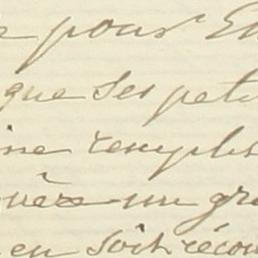 pour
que ses peti
ine rempli
ère un gr
en soit récom